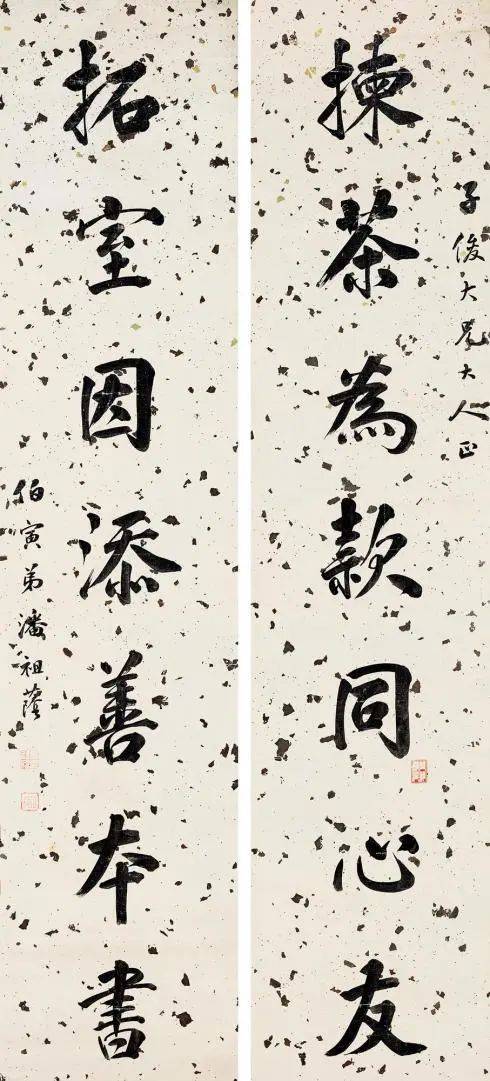 子俊大兄大人正
揀茶為款同心友
拓室因添善本書
伯寅弟潘祖蔭